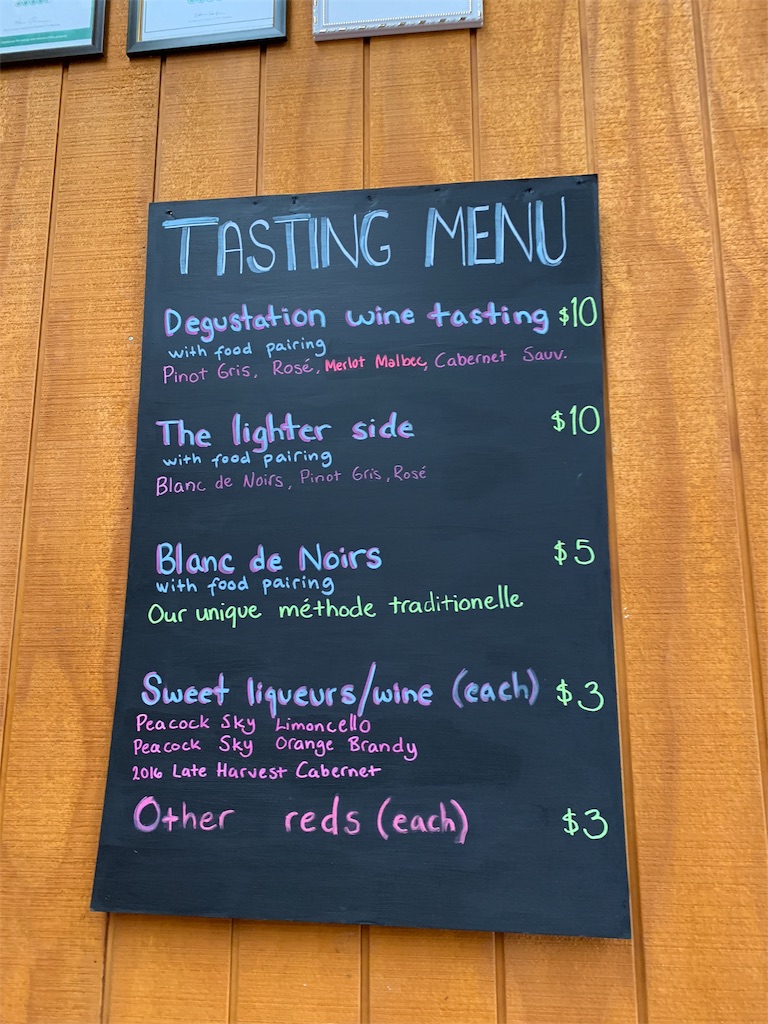 TASTING MENU
Degustation wine tasting $10
with food pairing
Pinot Gris, Rosé, Merlot Malbec, Cabernet Sauv.
The lighter side $10
with food pairing
Blanc de Noirs, Pinot Gris, Rosé
Blanc de Noirs $5
with food pairing
Our unique méthode traditionelle
Sweet liqueurs/wine (each) $3
Peacock Sky Limoncello
Peacock Sky Orange Brandy
2016 Late Harvest Cabernet
Other reds (each) $3